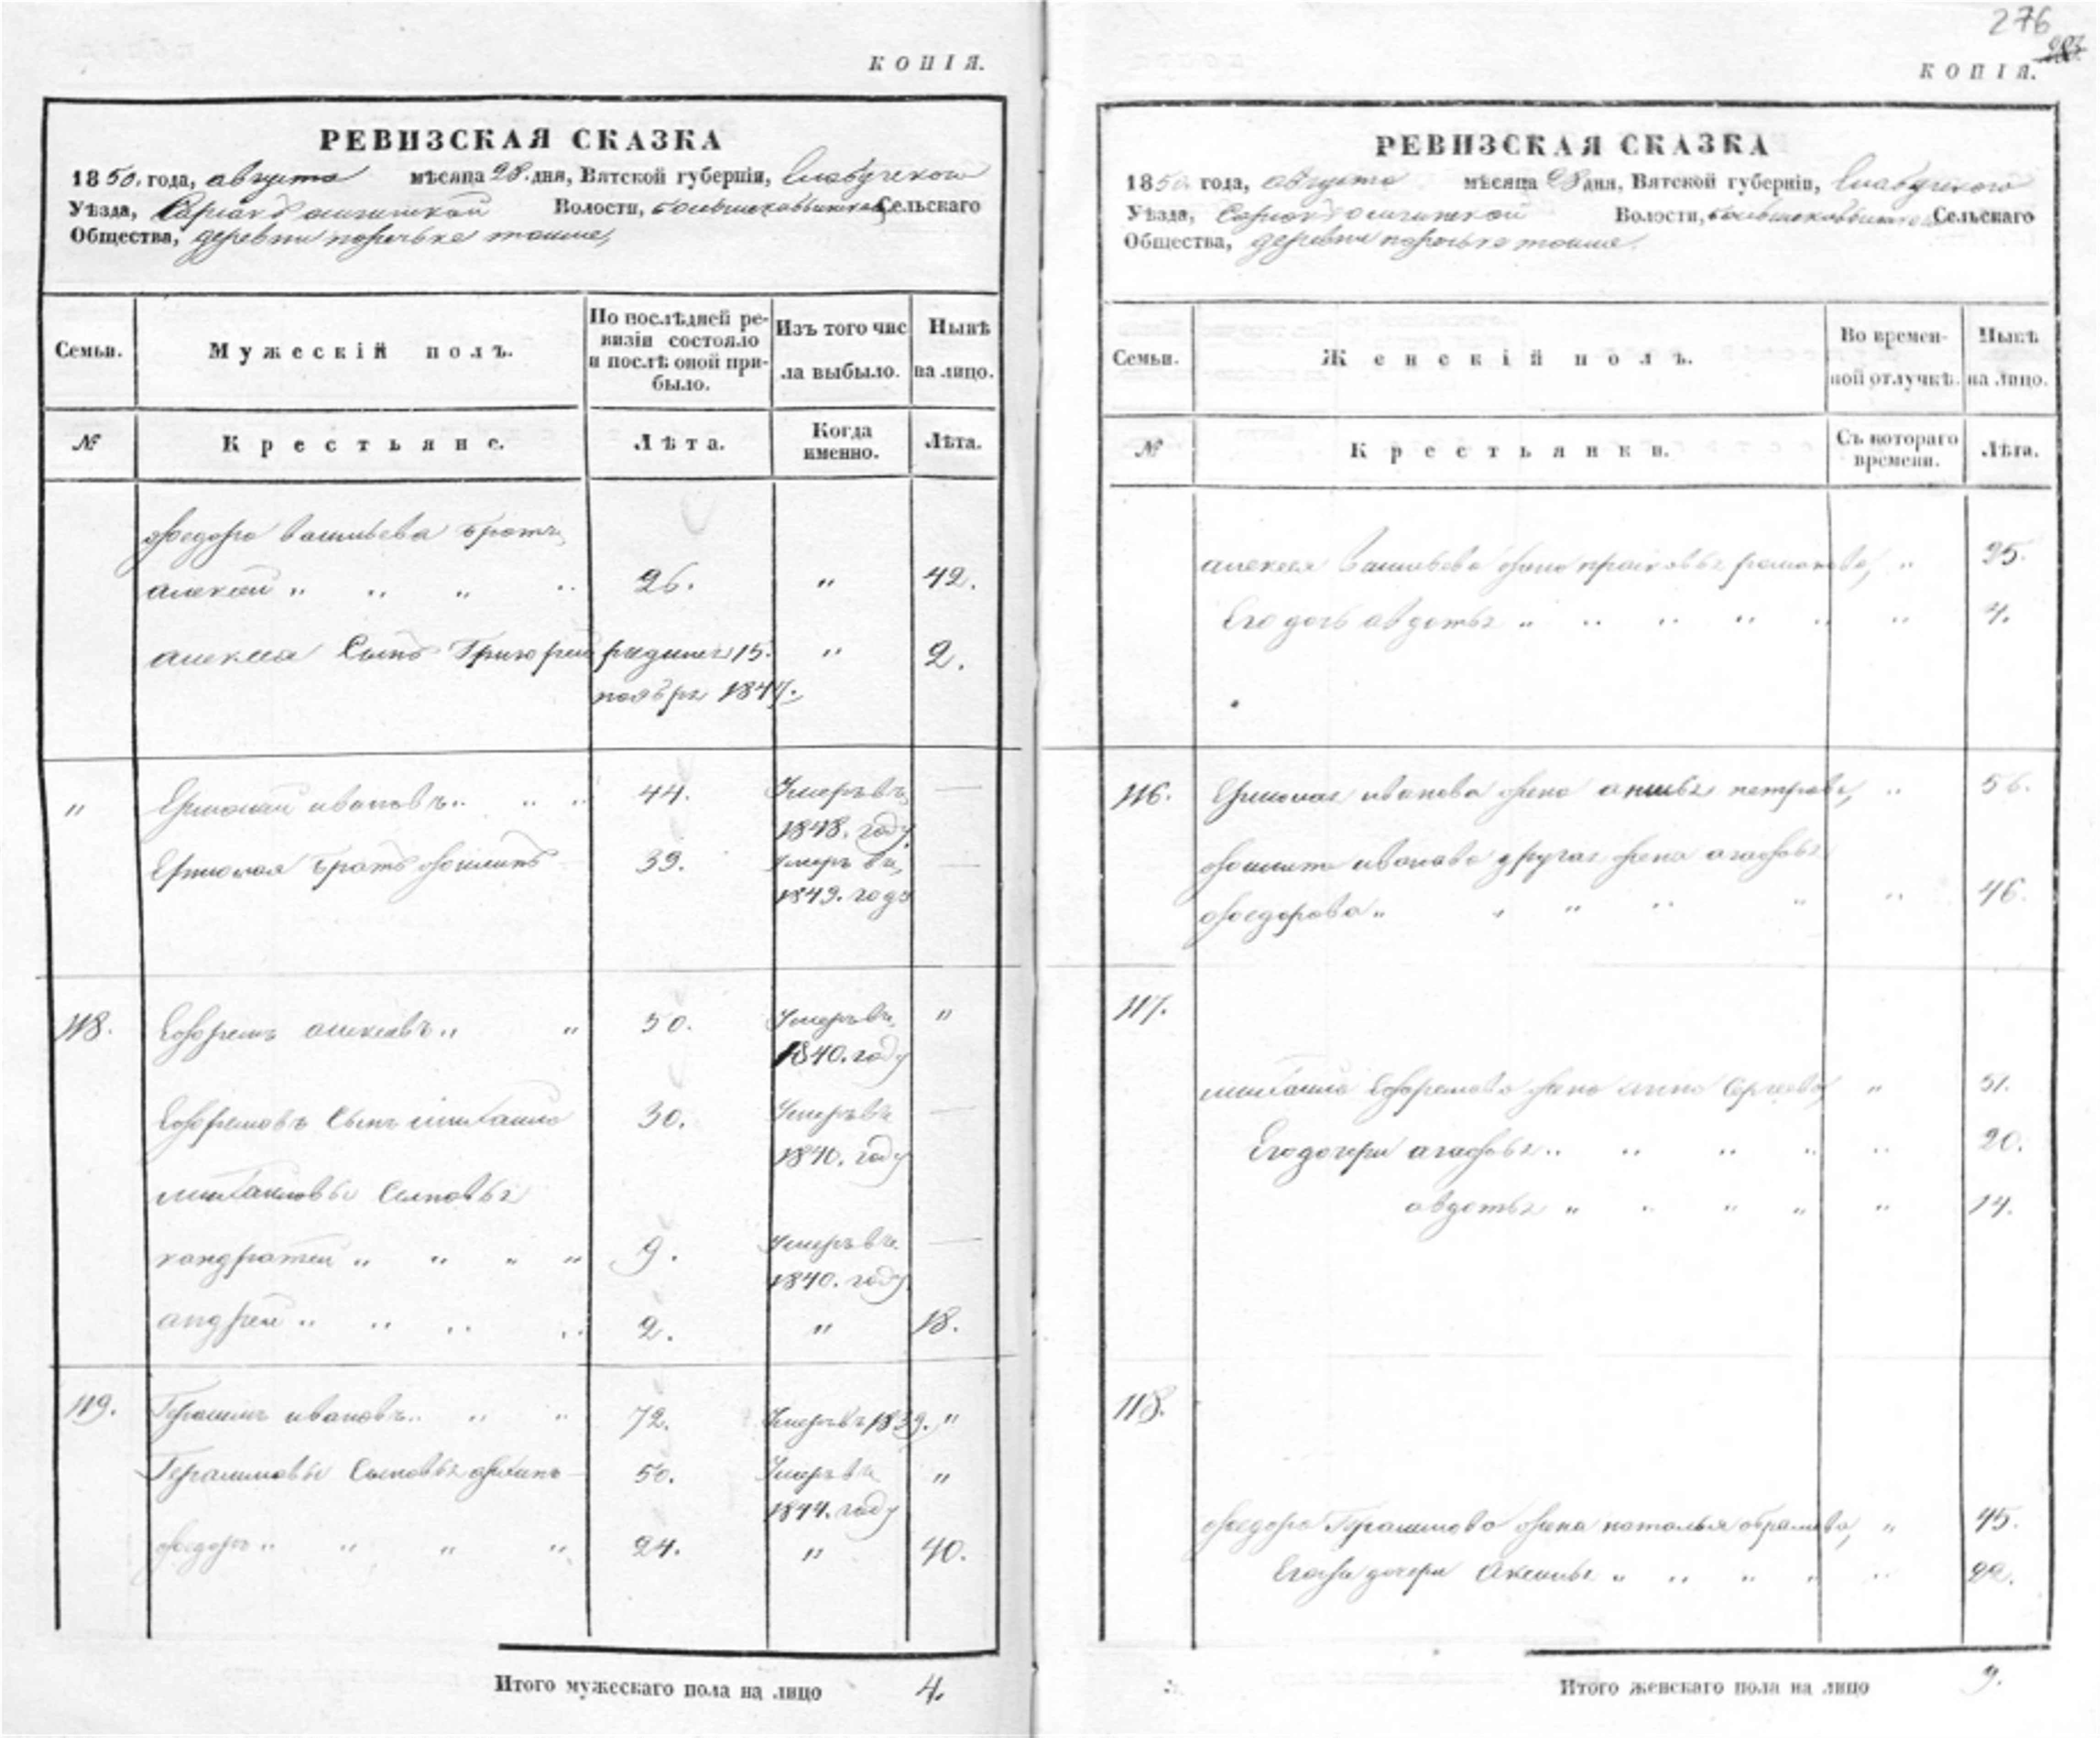 276
КОПІЯ.
РЕВИЗСКАЯ СКАЗКА
1850. года, августа мѣсяца 28. дня, Вятской губерніи, Елабугскаго
Уѣзда, Волости, Сельскаго
Общества, деревни
Семьи.
Мужескій полъ.
По послѣдней ре-
визіи состояло
и послѣ оной при-
было.
Изъ того чис
ла выбыло.
Нынѣ
на лицо.
№
Крестьяне.
Лѣта.
Когда
именно.
Лѣта.
Федора Васильева братъ
алексей " " " " 26. " 42.
алексея Сынъ Григорей родился 15. " 2.
ноября 1847.
" Ермолай ивановъ " " " 44. Умеръ въ —
1848. году
Ермолая братъ 39. умеръ въ —
1849. году
118. Ефремъ алексеевъ " " 50. Умеръ въ "
1840. году
Ефремовъ Сынъ михайло 30. Умеръ въ —
1840. году
михайловы Сыновья
кандратей " " " " 9. Умеръ въ —
1840. году
андрей " " " " 2. " 18.
119. Герасимъ ивановъ " " " 72. Умеръ въ 1839. "
Герасимовы Сыновья 50. Умеръ въ "
1844. году
федоръ " " " " 24. " 40.
Итого мужескаго пола на лицо 4.
КОПІЯ.
РЕВИЗСКАЯ СКАЗКА
1850 года, августа мѣсяца 28 дня, Вятской губерніи, Елабугскаго
Уѣзда, Волости, Сельскаго
Общества, деревни
Семьи.
Женскій полъ.
Во времен-
ной отлучкѣ.
Нынѣ
на лицо.
№
Крестьянки.
Съ котораго
времени.
Лѣта.
алексея Васильева жена прасковья романова, " 25.
Его дочь авдотья " " " " " " 4.
116. Ермолая иванова жена петрова, " 56.
иванова другая жена агафья
федорова " " " " " " 46.
117.
михайла Ефремова жена анна Сергеева, " 51.
Его дочери агафья " " " " " 20.
авдотья " " " " " 14.
118.
федора Герасимова жена наталья абрамова, " 45.
Его дочери Аксинья " " " " " 22.
Итого женскаго пола на лицо 9.